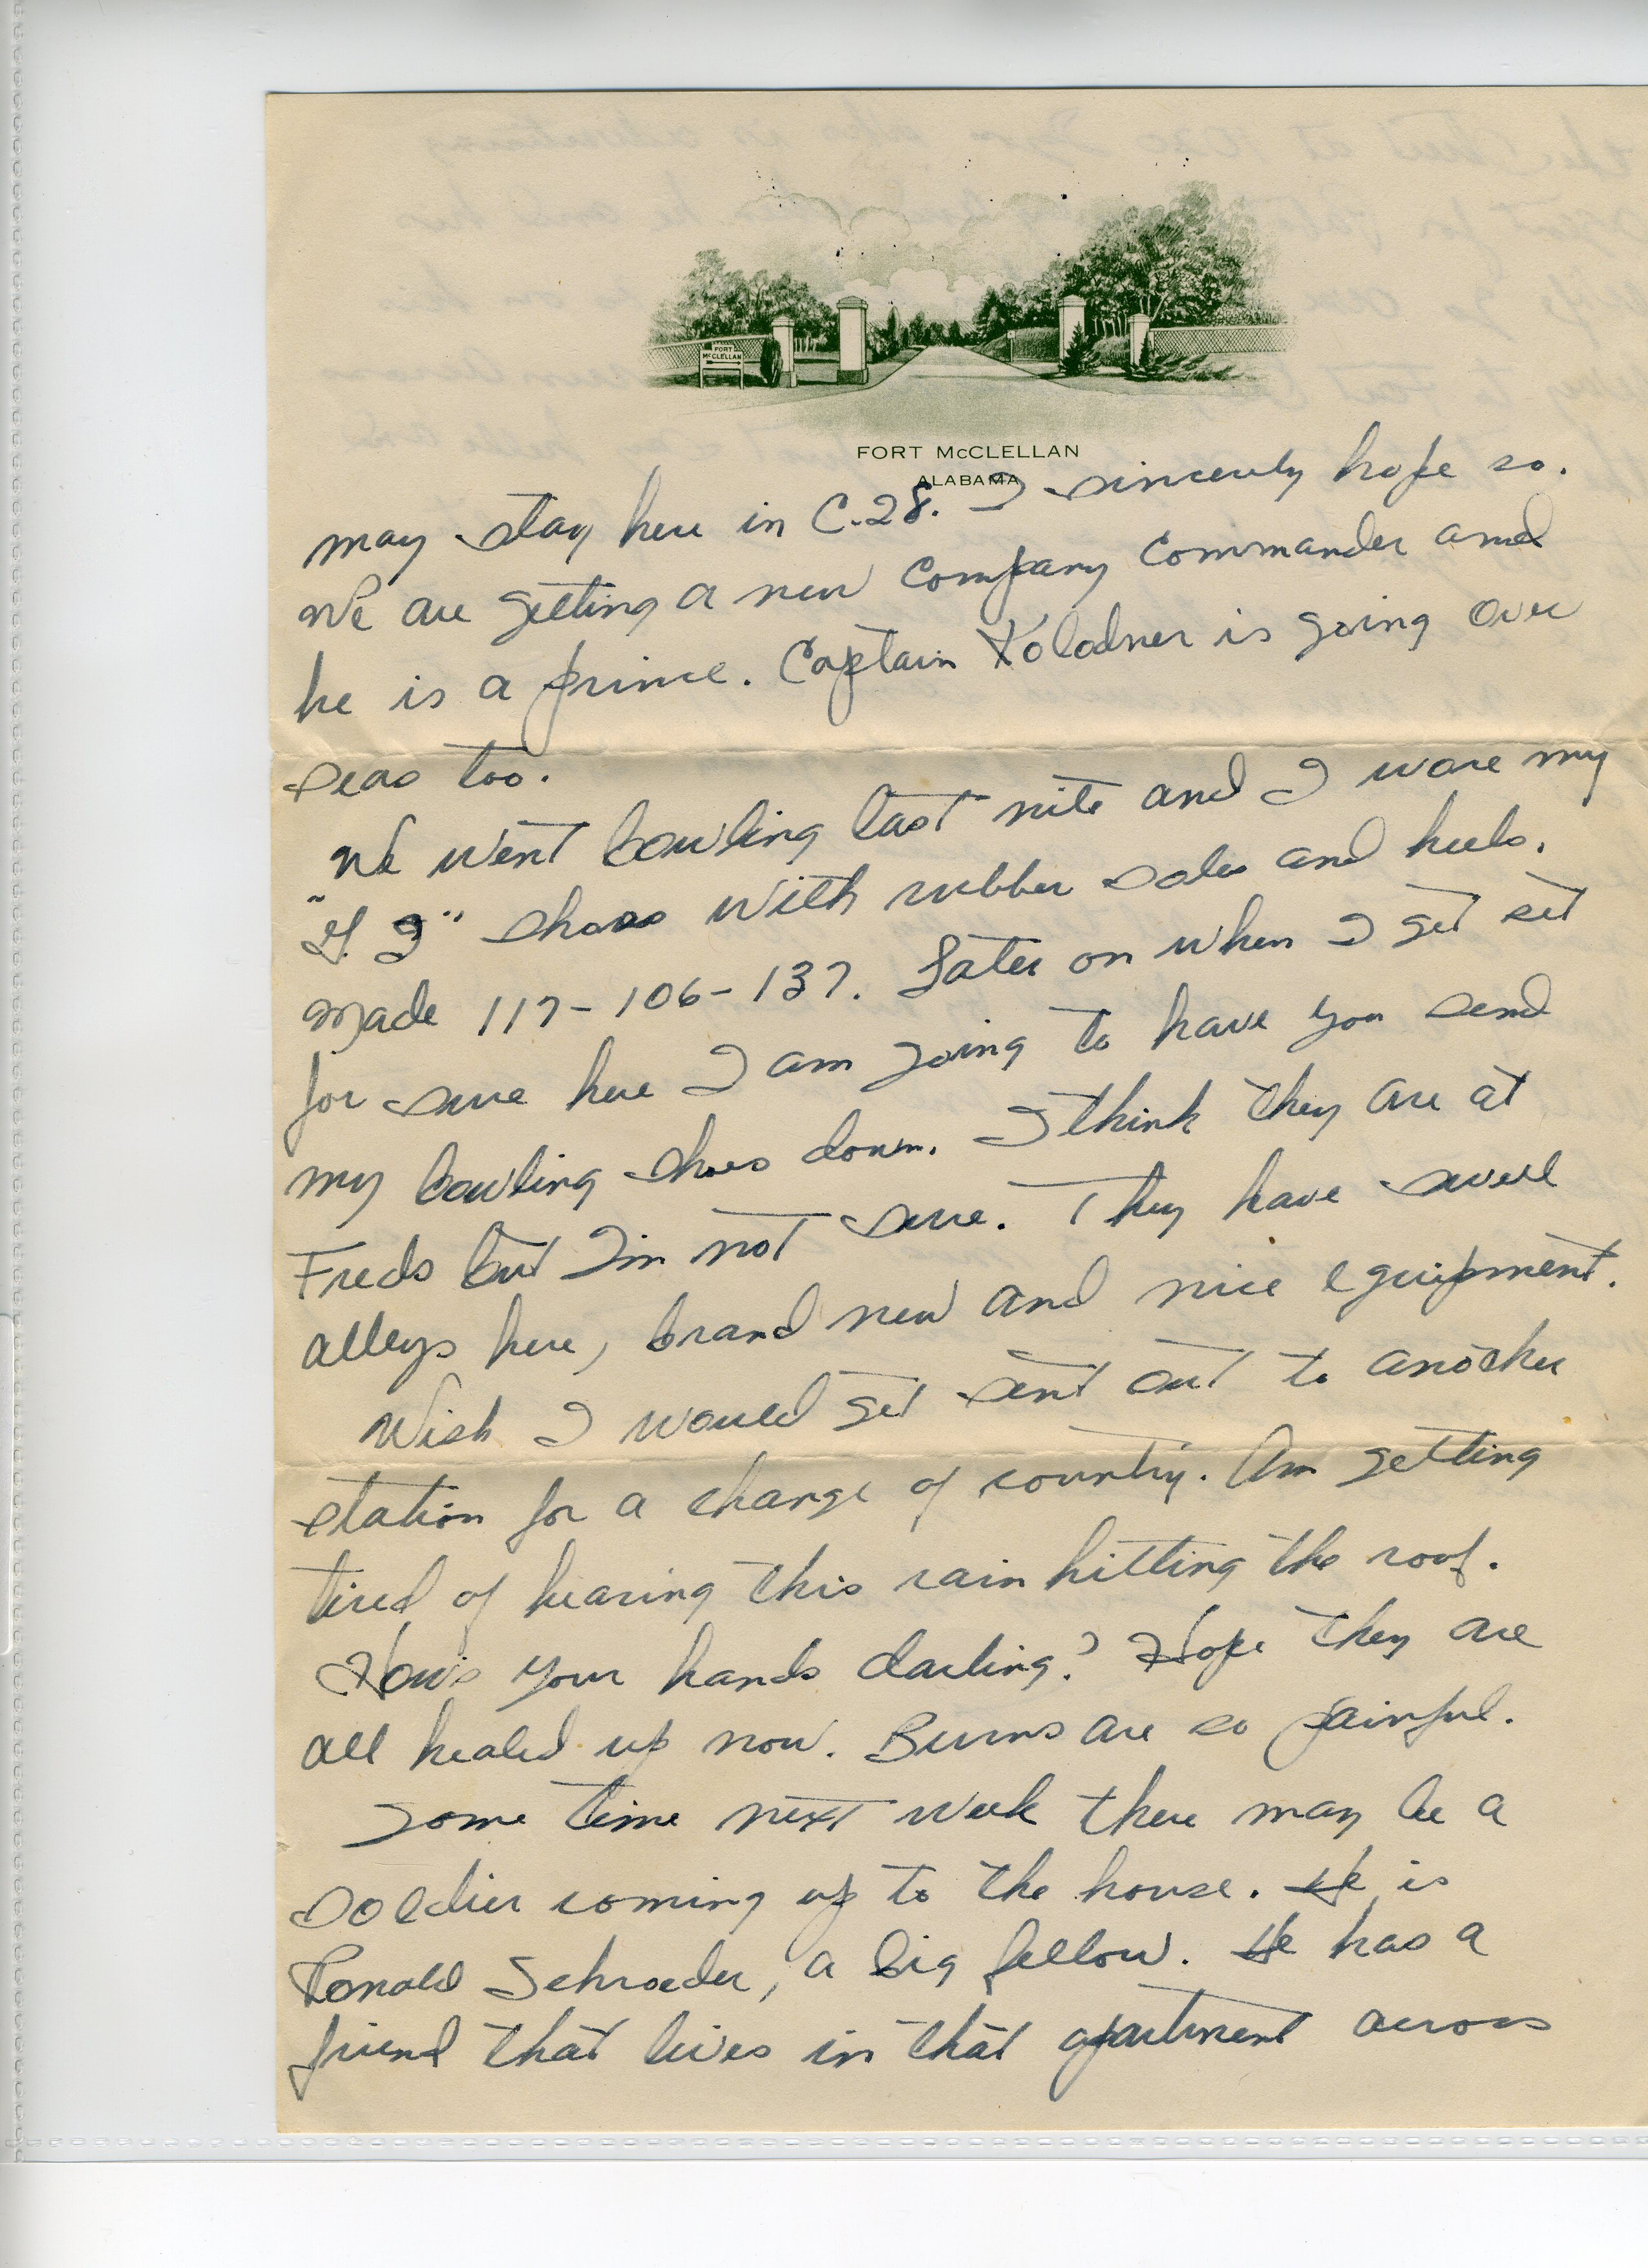 FORT
McCLELLAN
FORT McCLELLAN
ALABAMA
may stay here in C.28. I sincerely hope so.
We are getting a new Company Commander and
he is a prince. Captain Kolodner is going over
seas too.
We went bowling last nite and I wore my
"G.I" shoes with rubber soles and heels.
Made 117-106-137. Later on when I get set
for sure here I am going to have you send
my bowling shoes down. I think they are at
Freds but I'm not sure. They have swell
alleys here, brand new and nice equipment.
Wish I would get sent out to another
station for a change of country. Am getting
tired of hearing this rain hitting the roof.
How's your hands darling? Hope they are
all healed up now. Burns are so painful.
Some time next week there may be a
soldier coming up to the house. He is
Ronald Schroeder, a big fellow. He has a
friend that lives in that apartment across